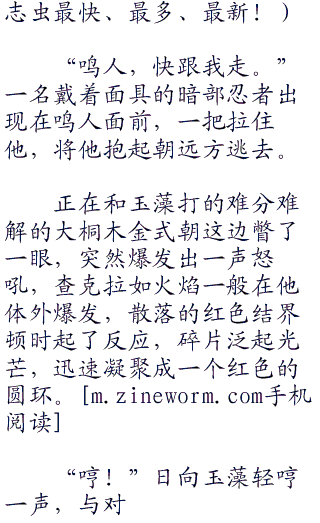 志虫最快、最多、最新！）
“鸣人，快跟我走。”
一名戴着面具的暗部忍者出
现在鸣人面前，一把拉住
他，将他抱起朝远方逃去。
正在和玉藻打的难分难
解的大桐木金式朝这边瞥了
一眼，突然爆发出一声怒
吼，查克拉如火焰一般在他
体外爆发，散落的红色结界
顿时起了反应，碎片泛起光
芒，迅速凝聚成一个红色的
圆环。[m.zineworm.com手机
阅读]
“哼！”日向玉藻轻哼
一声，与对